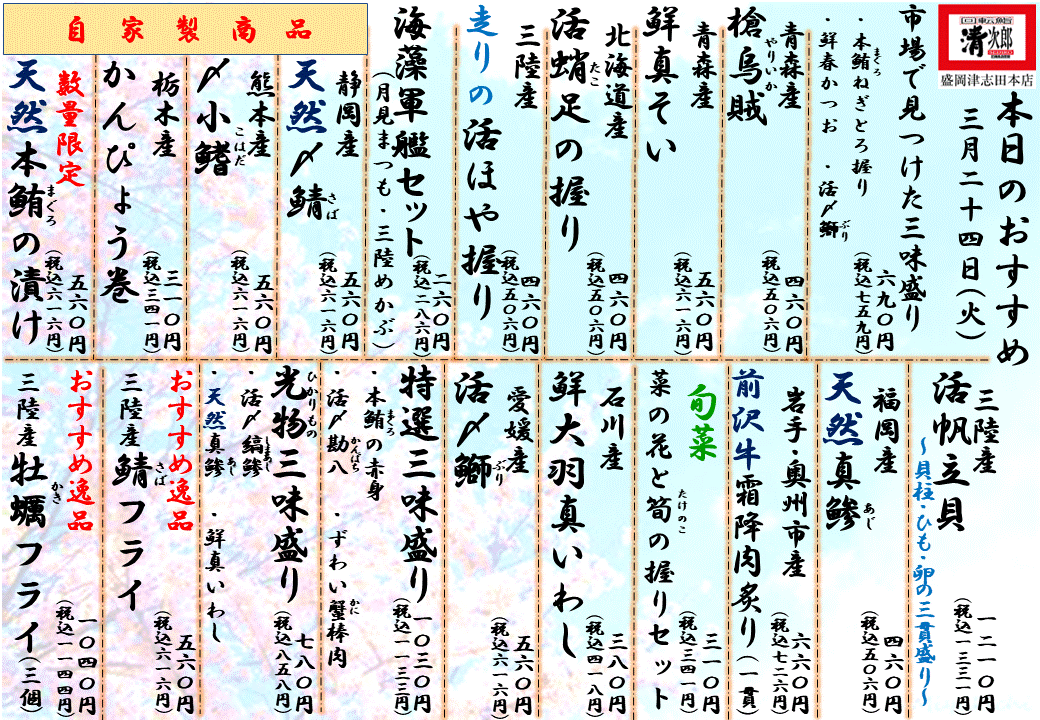 回転鮨
清次郎
盛岡津志田本店
本日のおすすめ
三月二十四日(火)
市場で見つけた三味盛り
・本鮪ねぎとろ握り
まぐろ
・鮮春かつお ・活〆鰤
ぶり
六九〇円
(税込七五九円)
青森産
槍烏賊
やりいか
四六〇円
(税込五〇六円)
青森産
鮮真そい
五六〇円
(税込六一六円)
北海道産
活蛸足の握り
たこ
四六〇円
(税込五〇六円)
三陸産
走りの活ほや握り
四六〇円
(税込五〇六円)
海藻軍艦セット
(月見まつも・三陸めかぶ)
二六〇円
(税込二八六円)
自家製商品
静岡産
天然〆鯖
さば
五六〇円
(税込六一六円)
熊本産
〆小鰭
こはだ
五六〇円
(税込六一六円)
栃木産
かんぴょう巻
三一〇円
(税込三四一円)
数量限定
天然本鮪の漬け
まぐろ
五六〇円
(税込六一六円)
三陸産
活帆立貝
~貝柱・ひも・卵の三貫盛り~
一二一〇円
(税込一三三一円)
福岡産
天然真鯵
あじ
四六〇円
(税込五〇六円)
岩手・奥州市産
前沢牛霜降肉炙り(一貫)
六六〇円
(税込七二六円)
旬菜
菜の花と筍の握りセット
たけのこ
三一〇円
(税込三四一円)
石川産
鮮大羽真いわし
三八〇円
(税込四一八円)
愛媛産
活〆鰤
ぶり
五六〇円
(税込六一六円)
特選三味盛り
・本鮪の赤身
まぐろ
・活〆勘八 ・ずわい蟹棒肉
かんぱち
かに
一〇三〇円
(税込一一三三円)
光物三味盛り
ひかりもの
・活〆縞鯵
しまあじ
・天然真鯵 ・鮮真いわし
あじ
七八〇円
(税込八五八円)
おすすめ逸品
三陸産鯖フライ
さば
五六〇円
(税込六一六円)
おすすめ逸品
三陸産牡蠣フライ(三個)
かき
一〇四〇円
(税込一一四四円)